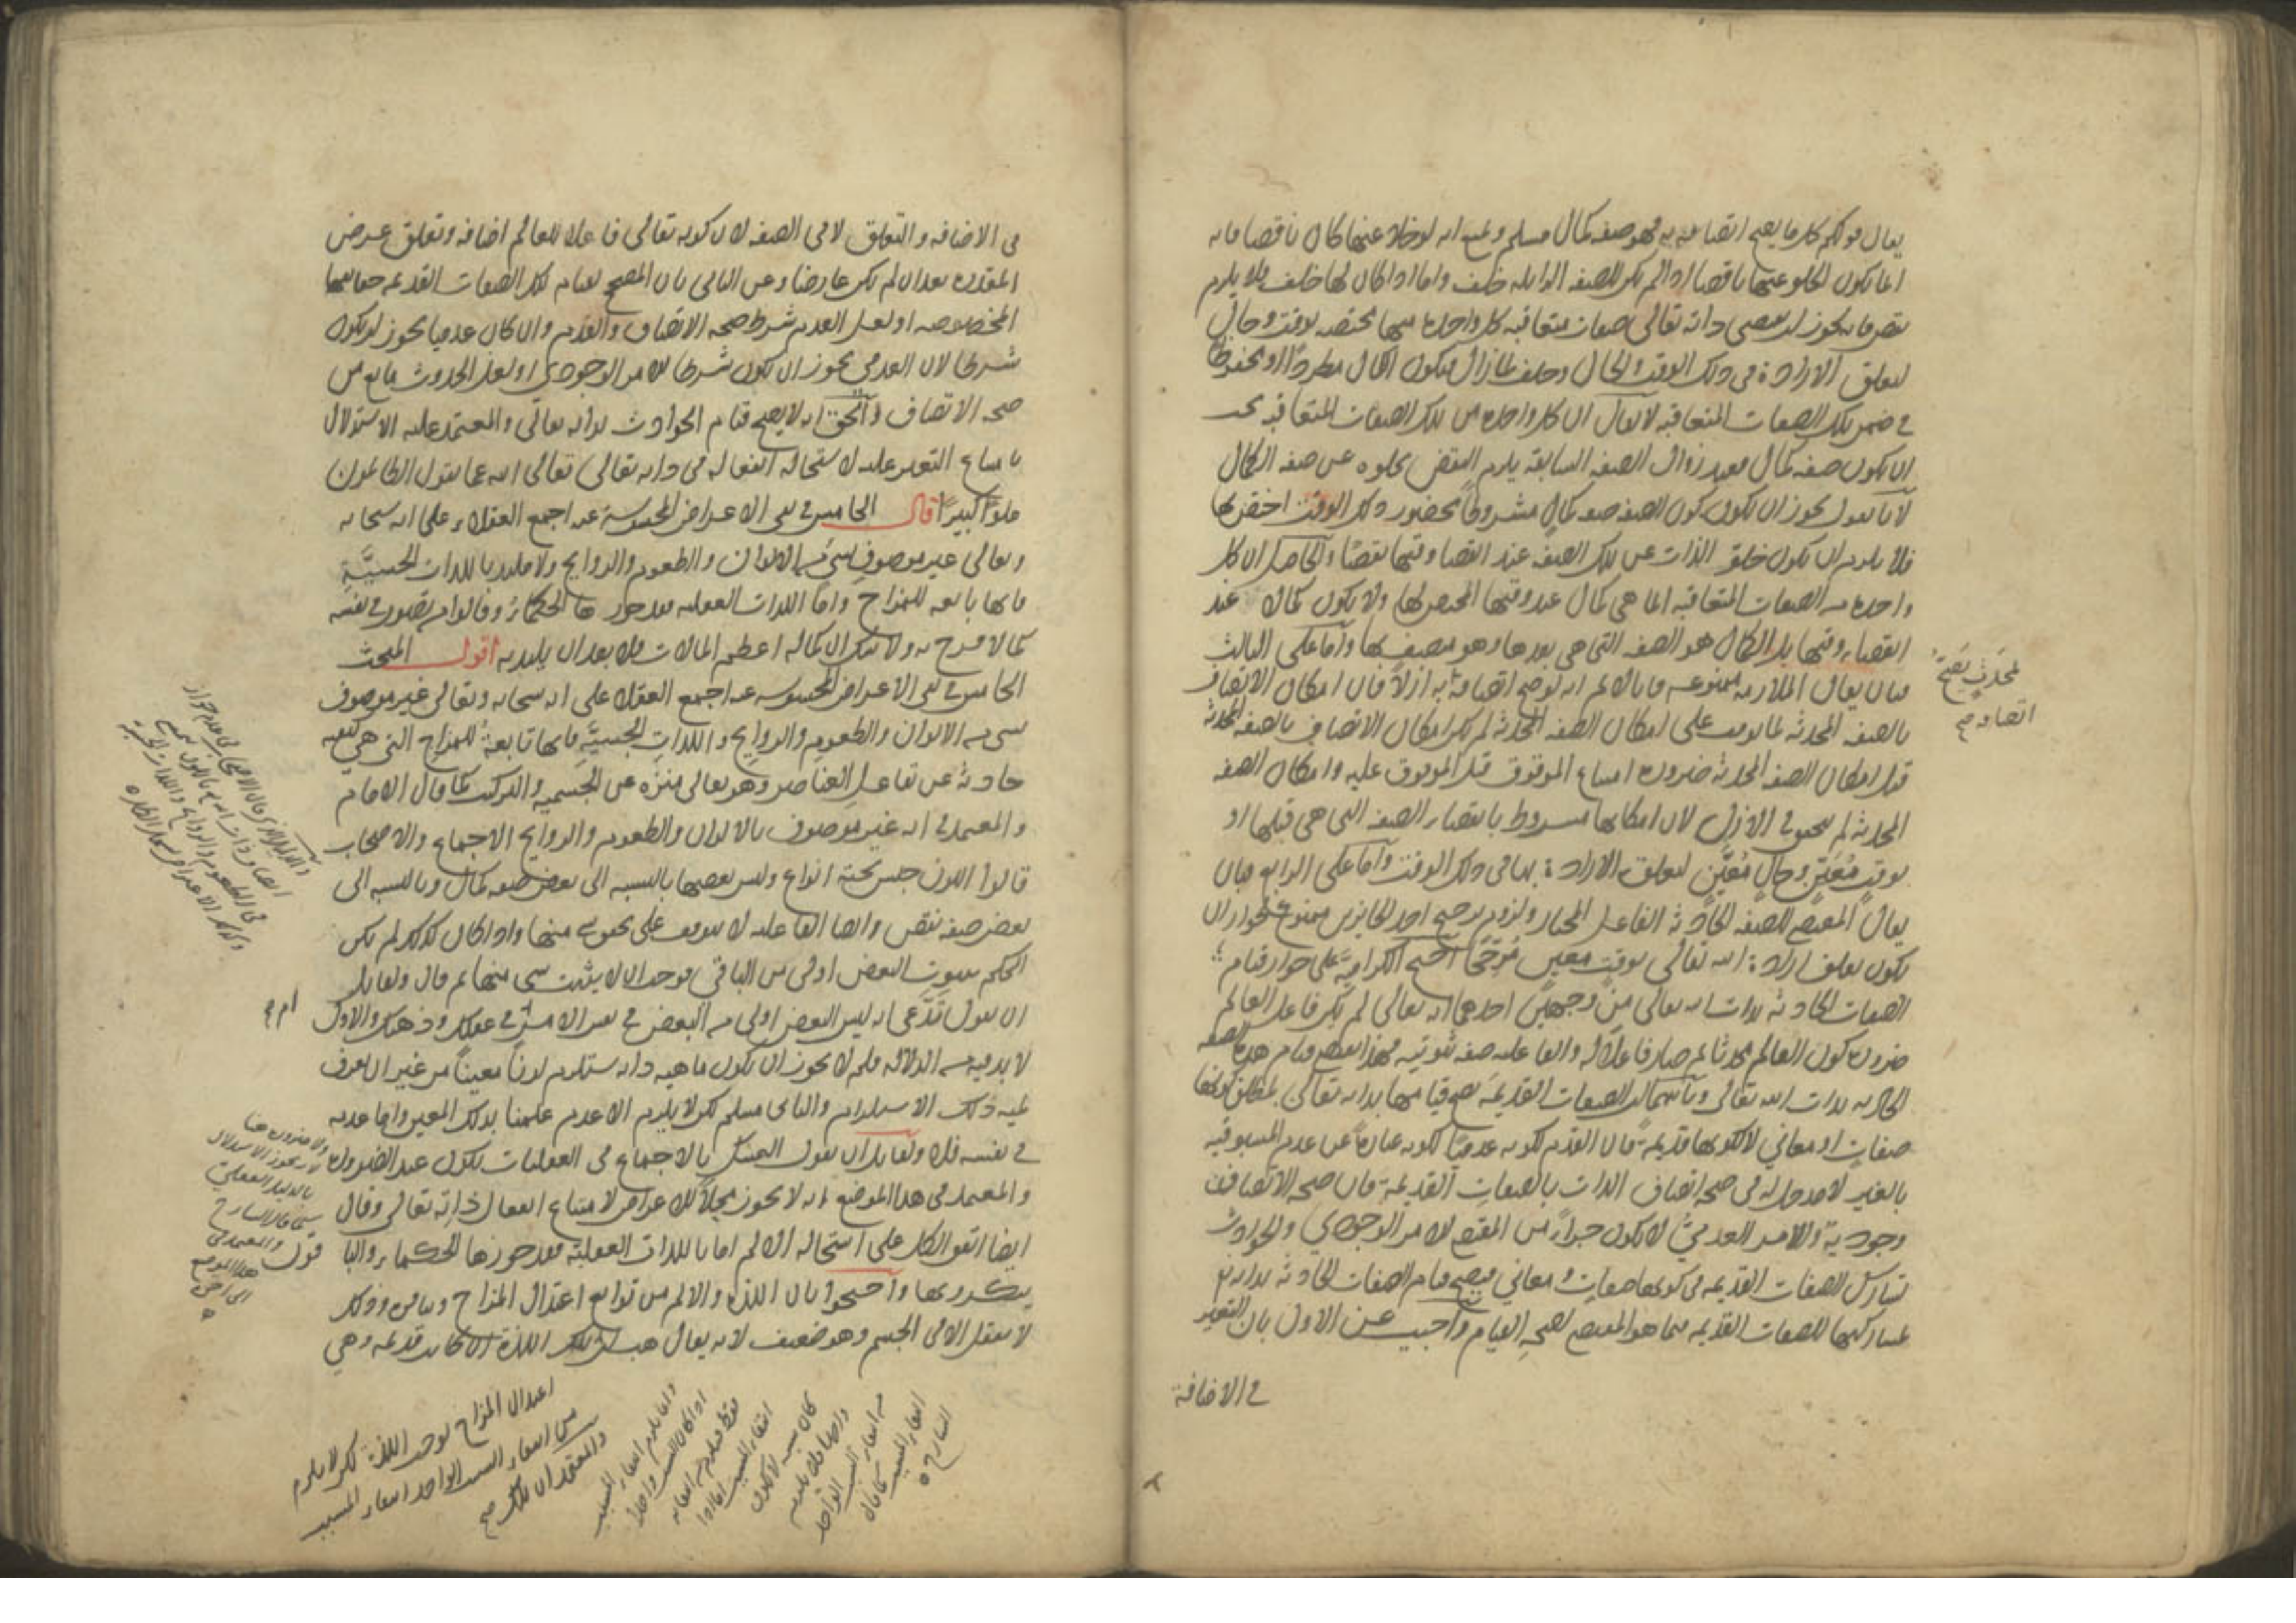 يقال قولكم كل ما يصح اتصافه به فهو صفة كمال مسلم ونمنع انه لو خلا عنها كان ناقصا فانه
انما يكون الخلو عنها ناقصا اذا لم يكن للصفة الزايلة خلف واما اذا كان لها خلف فلا يلزم
نقص فانه يجوز ان يقتضي ذاته تعالى صفات متعاقبة كل واحدة منها مختصة بوقت وحال
لتعلق الارادة في ذلك الوقت والحال وخلف لما زال فيكون الكمال مطردا او محفوظا
في ضمن تلك الصفات المتعاقبة لا يقال ان كل واحدة من تلك الصفات المتعاقبة يجب
ان يكون صفة كمال فبعد زوال الصفة السابقة يلزم النقص بخلوه عن صفة الكمال
لانا نقول يجوز ان يكون كون الصفة صفة كمال مشروطا بحضور ذلك الوقت اختص بها
فلا يلزم ان يكون خلو الذات عن تلك الصفة عند انقضا وقتها نقصا والحاصل ان كل
واحدة من الصفات المتعاقبة انما هي كمال عند وقتها المختص لها ولا يكون كمالا عند
انقضاء وقتها بل الكمال هو الصفة التي هي بعدها وهو متصف بها واما على الثالث
فبان يقال الملازمة ممنوعة فانا لا نم انه لو صح اتصافه به ازلا فان امكان الاتصاف
بالصفة المحدثة لما توقف على امكان الصفة المحدثة لم يكن امكان الاتصاف بالصفة المحدثة
قبل امكان الصفة المحدثة ضرورة امتناع الموقوف قبل الموقوف عليه وامكان الصفة
المحدثة لم يتحقق في الازل لان امكانها مشروط بانقضاء الصفة التي هي قبلها او
بوقت معين وحال معين لتعلق الارادة بها في ذلك الوقت واما على الرابع فبان
يقال المقتضي للصفة الحادثة الفاعل المختار ولزوم ترجيح احد الجايزين ممنوع لجواز ان
يكون تعلق ارادة الله تعالى بوقت معين مرجحا احتج الكرامية على جواز قيام
الصفات الحادثة بذات الله تعالى من وجهين احدهما انه تعالى لم يكن فاعل العالم
ضرورة كون العالم محدثا ثم صار فاعلا له والفاعلية صفة ثبوتية فهذا يقتضي قيام هذه الصفة
الحادثة بذات الله تعالى وثانيهما ان الصفات القديمة يصح قيامها بذاته تعالى لمطلق كونها
صفات او معاني لا لكونها قديمة فان القدم لكونه عدميا لكونه عبارة عن عدم المسبوقية
بالغير لا مدخل له في صحة اتصاف الذات بالصفات القديمة فان صحة الاتصاف
وجودية والامر العدمي لا يكون جزءا من المقتضي للامر الوجودي والحوادث
تشارك الصفات القديمة في كونها صفات ومعاني فيصح قيام الصفات الحادثة بذاته
لمشاركتها للصفات القديمة فيما هو المقتضي لصحة القيام واجيب عن الاول بان التغير
في الاضافة
لمحدث يصح
اتصافه صح
في الاضافة والتعلق لا في الصفة لان كونه تعالى فاعلا للعالم اضافة وتعلق عرض
للقدرة بعد ان لم يكن عارضا وعن الثاني بان المصحح لقيام تلك الصفات القديمة حقايقها
المخصوصة او لعل القدم شرط صحة الاتصاف والقدم وان كان عدميا يجوز ان يكون
شرطا لان العدمي يجوز ان يكون شرطا للامر الوجودي او لعل الحدوث مانع من
صحة الاتصاف والحق انه لا يصح قيام الحوادث بذاته تعالى والمعتمد عليه الاستدلال
بامتناع التغير عليه لاستحالة انفعاله في ذاته تعالى تعالى الله عما يقول الظالمون
علوا كبيرا قال الخامس في نفي الاعراض المحسوسة عنه اجمع العقلاء على انه سبحانه
وتعالى غير موصوف بشيء من الالوان والطعوم والروايح ولا ملتذ باللذات الحسية
فانها تابعة للمزاج واما اللذات العقلية فقد جوزها الحكماء وقالوا من تصور في نفسه
كمالا فرح به ولا شك ان كماله اعظم الكمالات فلا بعد ان يلتذ به اقول المبحث
الخامس في نفي الاعراض المحسوسة عنه اجمع العقلا على انه سبحانه وتعالى غير موصوف
بشيء من الالوان والطعوم والروايح واللذات الحسية فانها تابعة للمزاج التي هي كيفية
حادثة عن تفاعل العناصر وهو تعالى منزه عن الجسمية والتركيب كما قال الامام
والمعتمد في انه غير موصوف بالالوان والطعوم والروايح الاجماع والاصحاب
قالوا اللون جنس تحته انواع وليس بعضها بالنسبة الى بعض صفة كمال وبالنسبة الى
بعض صفة نقص وايضا الفاعلية لا تتوقف على تحقق شيء منها واذا كان كذلك لم يكن
الحكم بثبوت البعض اولى من الباقي فوجب ان لا يثبت شيء منها ثم قال ولقايل
ان يقول تدعي انه ليس البعض اولى من البعض في نفس الامر ام في عقلك وذهنك والاول
لا بد فيه من الدلالة فلم لا يجوز ان يكون ماهية ذاته تستلزم لونا معينا من غير ان نعرف
لمية ذلك الاستلزام والثاني مسلم لكن لا يلزم الا عدم علمنا بذلك المعين واما عدمه
في نفسه فلا ولقايل ان يقول التمسك بالاجماع في العقليات يكون عند الضرورة
والمعتمد في هذا الموضع انه لا يجوز محلا للاعراض لامتناع انفعال ذاته تعالى وقال
ايضا اتفق الكل على استحالة الالم اما باللذات العقلية فقد جوزها الحكماء والباقون
ينكرونها واحتجوا بان اللذة والالم من توابع اعتدال المزاج وتنافره وذلك
لا يعقل الا في الجسم وهو ضعيف لانه يقال هب ان تلك اللذة ان كانت قديمة وهي
ولا ضرورة هنا
بالدليل العقلي
والمعتمد في
هذا الموضع
اعتدال المزاج يوجب اللذة لكن لا يلزم
من انتفاء السبب الواحد انتفاء المسبب